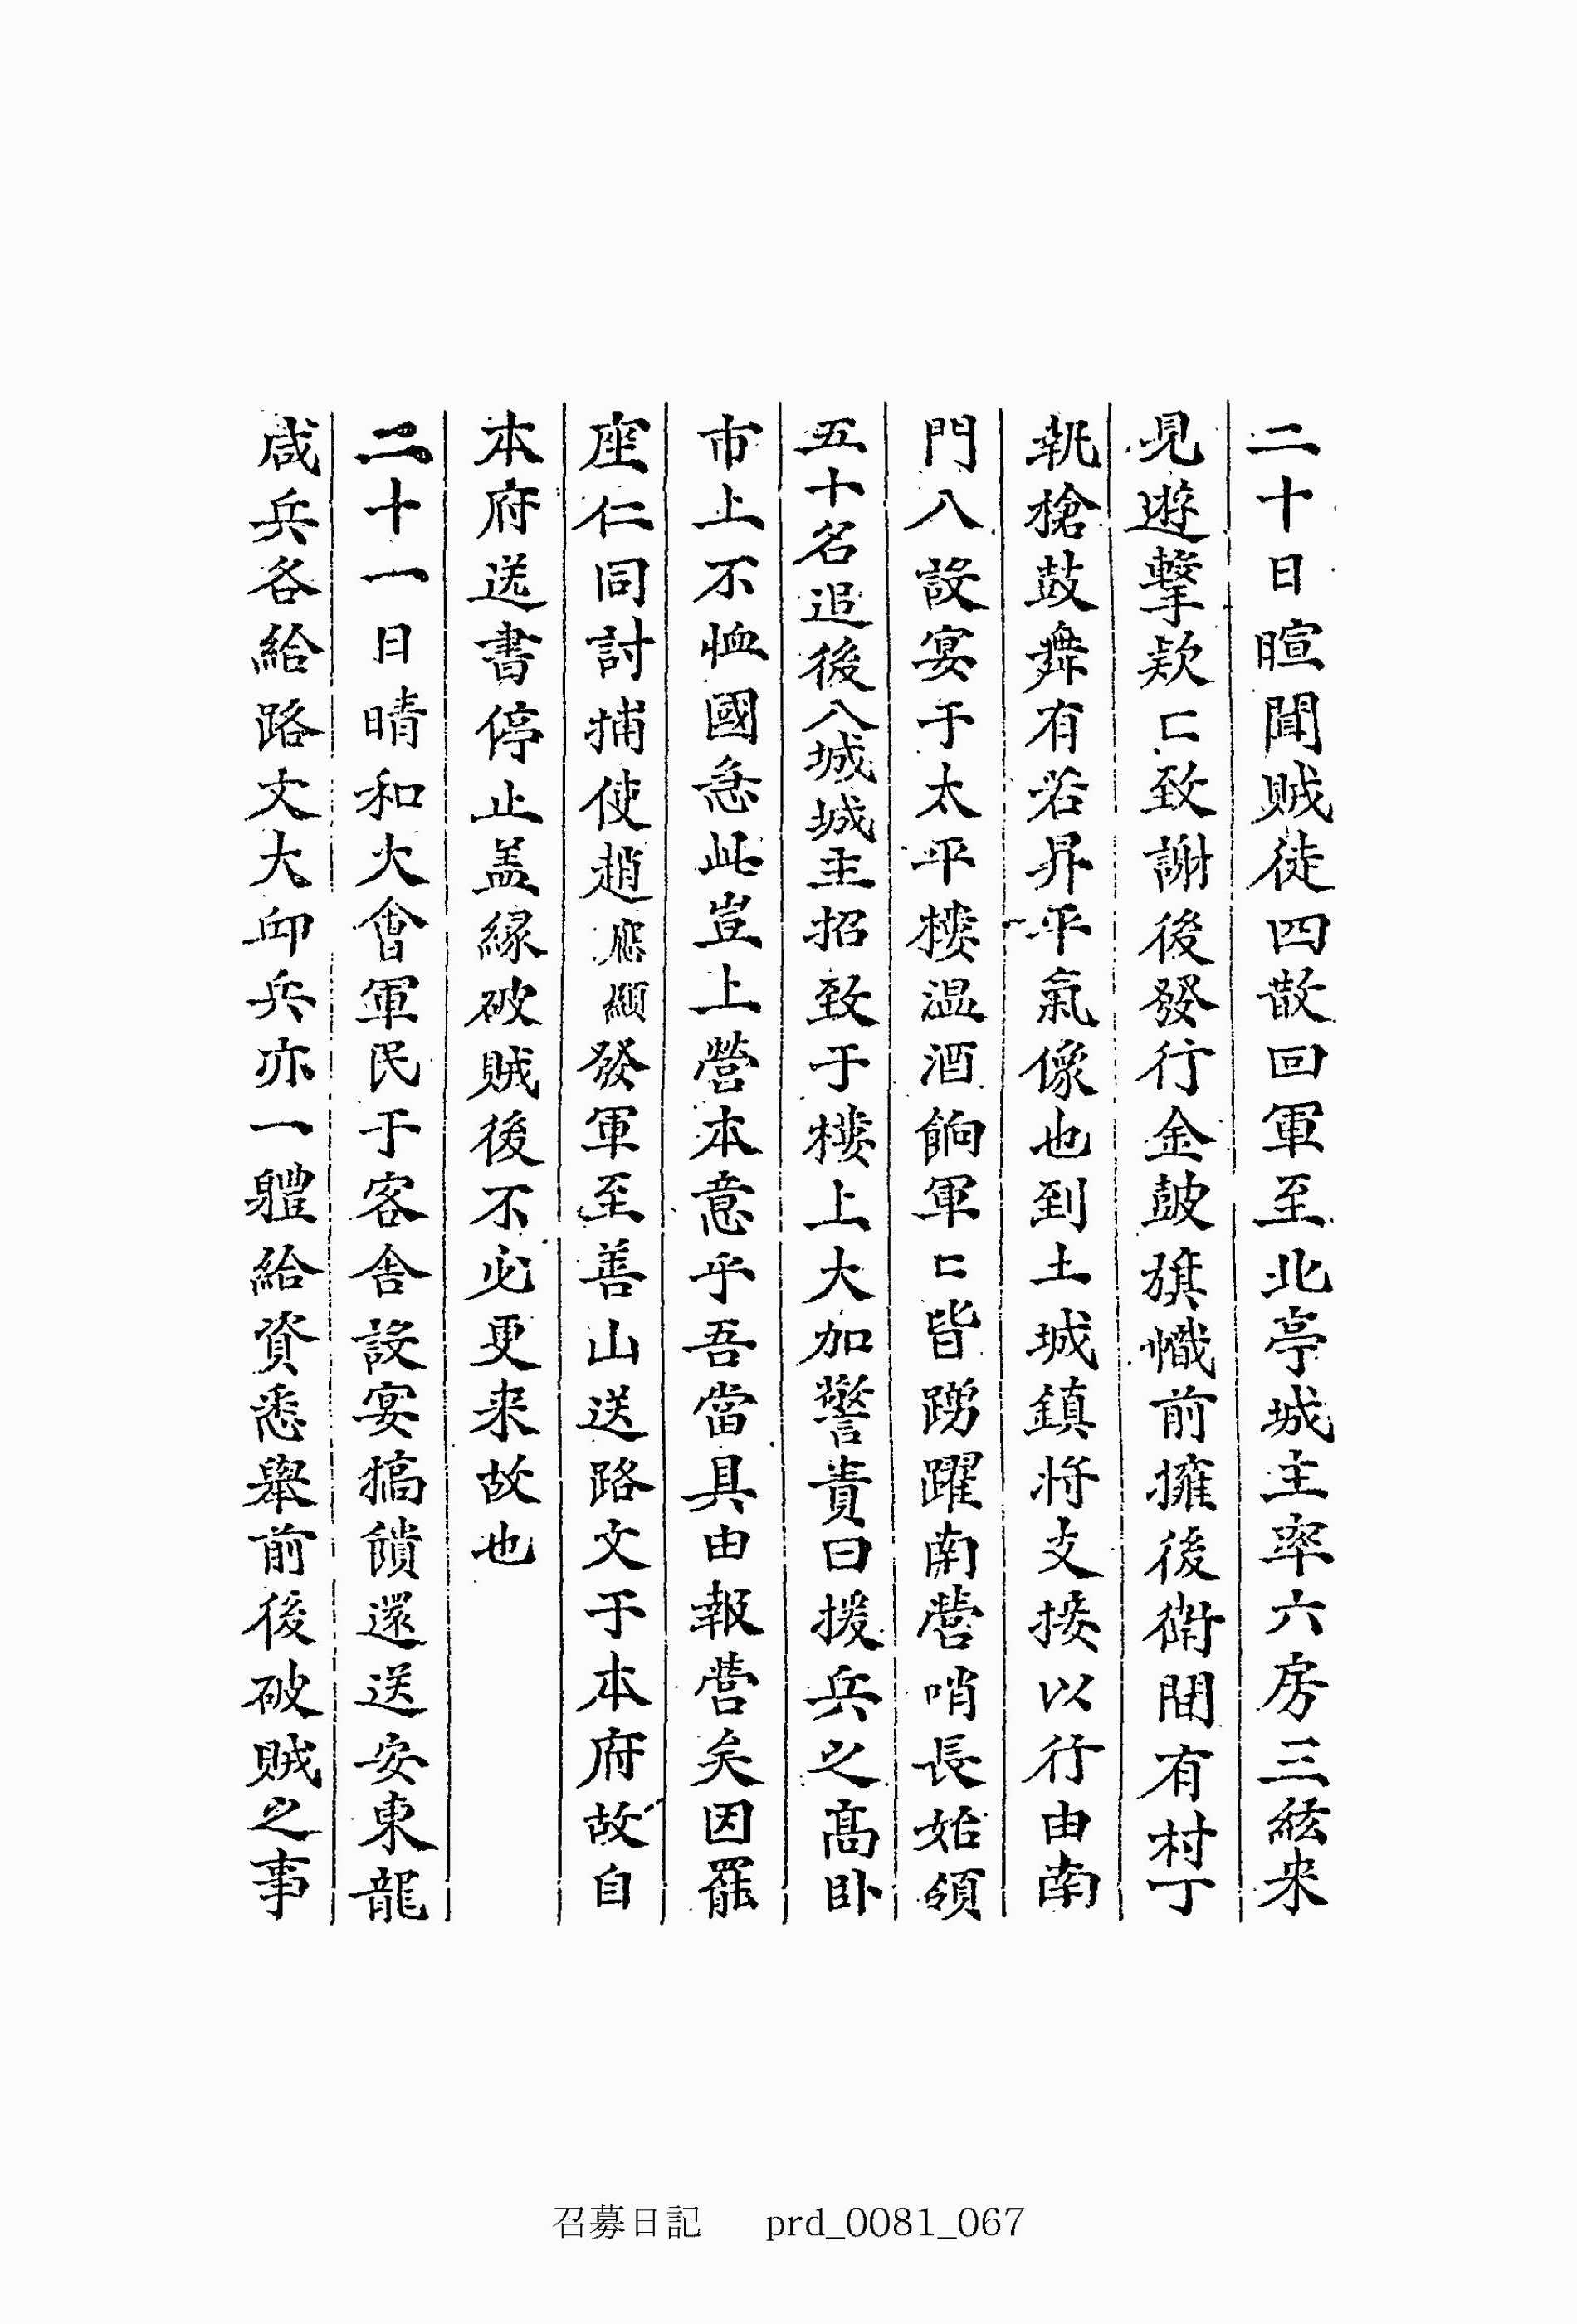 二十日暄聞賊徒四散回軍至北亭城主率六房三絃来
見遊擊欵〻致謝後發行金鼓旗幟前擁後衛間有村丁
執槍鼓舞有若昇平氣像也到土城鎮將支接以行由南
門入設宴于太平樓温酒餉軍〻皆踴躍南營哨長始領
五十名追後入城城主招致于樓上大加警責曰援兵之高卧
市上不恤國急此豈上營本意乎吾當具由報營矣因罷
座仁同討捕使趙應顯發軍至善山送路文于本府故自
本府送書停止盖緣破賊後不必更来故也
二十一日晴和大會軍民于客舍設宴犒饋還送安東龍
咸兵各給路文大邱兵亦一體給資悉舉前後破賊之事
召募日記 prd_0081_067